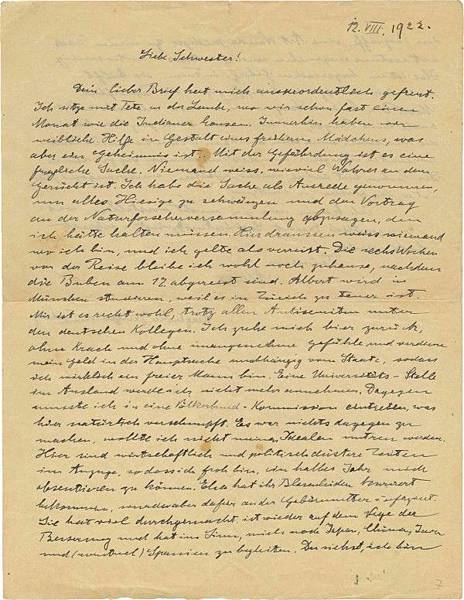 12. VIII. 1922.
Liebe Schwester!
Dein lieber Brief hat mich ausserordentlich gefreut.
Ich sitze mit Tete in der Laube, wo wir schon fast einen
Monat wie die Indianer hausen. Immerhin haben wir
weibliche Hilfe in Gestalt eines frühern Mädchens, was
aber ein Geheimnis ist. Mit der Gefährdung ist es eine
fragliche Sache. Niemand weiss, wieviel Wahres an dem
Gerücht ist. Ich habe die Sache als Ausrede genommen,
um alles Hiesige zu schwänzen und den Vortrag
an der Naturforscherversammlung abzusagen, den
ich hätte halten müssen. Hier draussen weiss niemand
wo ich bin, und ich gelte als verreist. Die sechs Wochen
vor der Reise bleibe ich wohl noch zuhause, nachdem
die Buben am 17. abgereist sind. Albert wird in
München studieren, weil es in Zürich zu teuer ist.
Mir ist es recht wohl, trotz aller Antisemiten unter
den deutschen Kollegen. Ich ziehe mich hier zurück,
ohne Krach und ohne unangenehme Gefühle und verdiene
mein Geld in der Hauptsache unabhängig vom Staate, sodass
ich wirklich ein freier Mann bin. Eine Universitäts-Stelle
im Ausland werde ich nicht mehr annehmen. Dagegen
musste ich in eine Völkerbund-Kommission eintreten, was
hier natürlich verschnupft. Es war nichts dagegen zu
machen, wollte ich nicht meinen Idealen untreu werden.
Hier sind wirtschaftlich und politisch düstere Zeiten
im Anzuge, sodass ich froh bin, ein halbes Jahr mich
absentieren zu können. Elsa hat ihr Blasenleiden kuriert
bekommen, wurde aber dafür an der Gebärmutter
Sie hat viel durchgemacht, ist wieder auf dem Wege der
Besserung und hat im Sinn, mich nach Japan, China, Java
und (eventuel) Spanien zu begleiten. Du siehst, ich bin